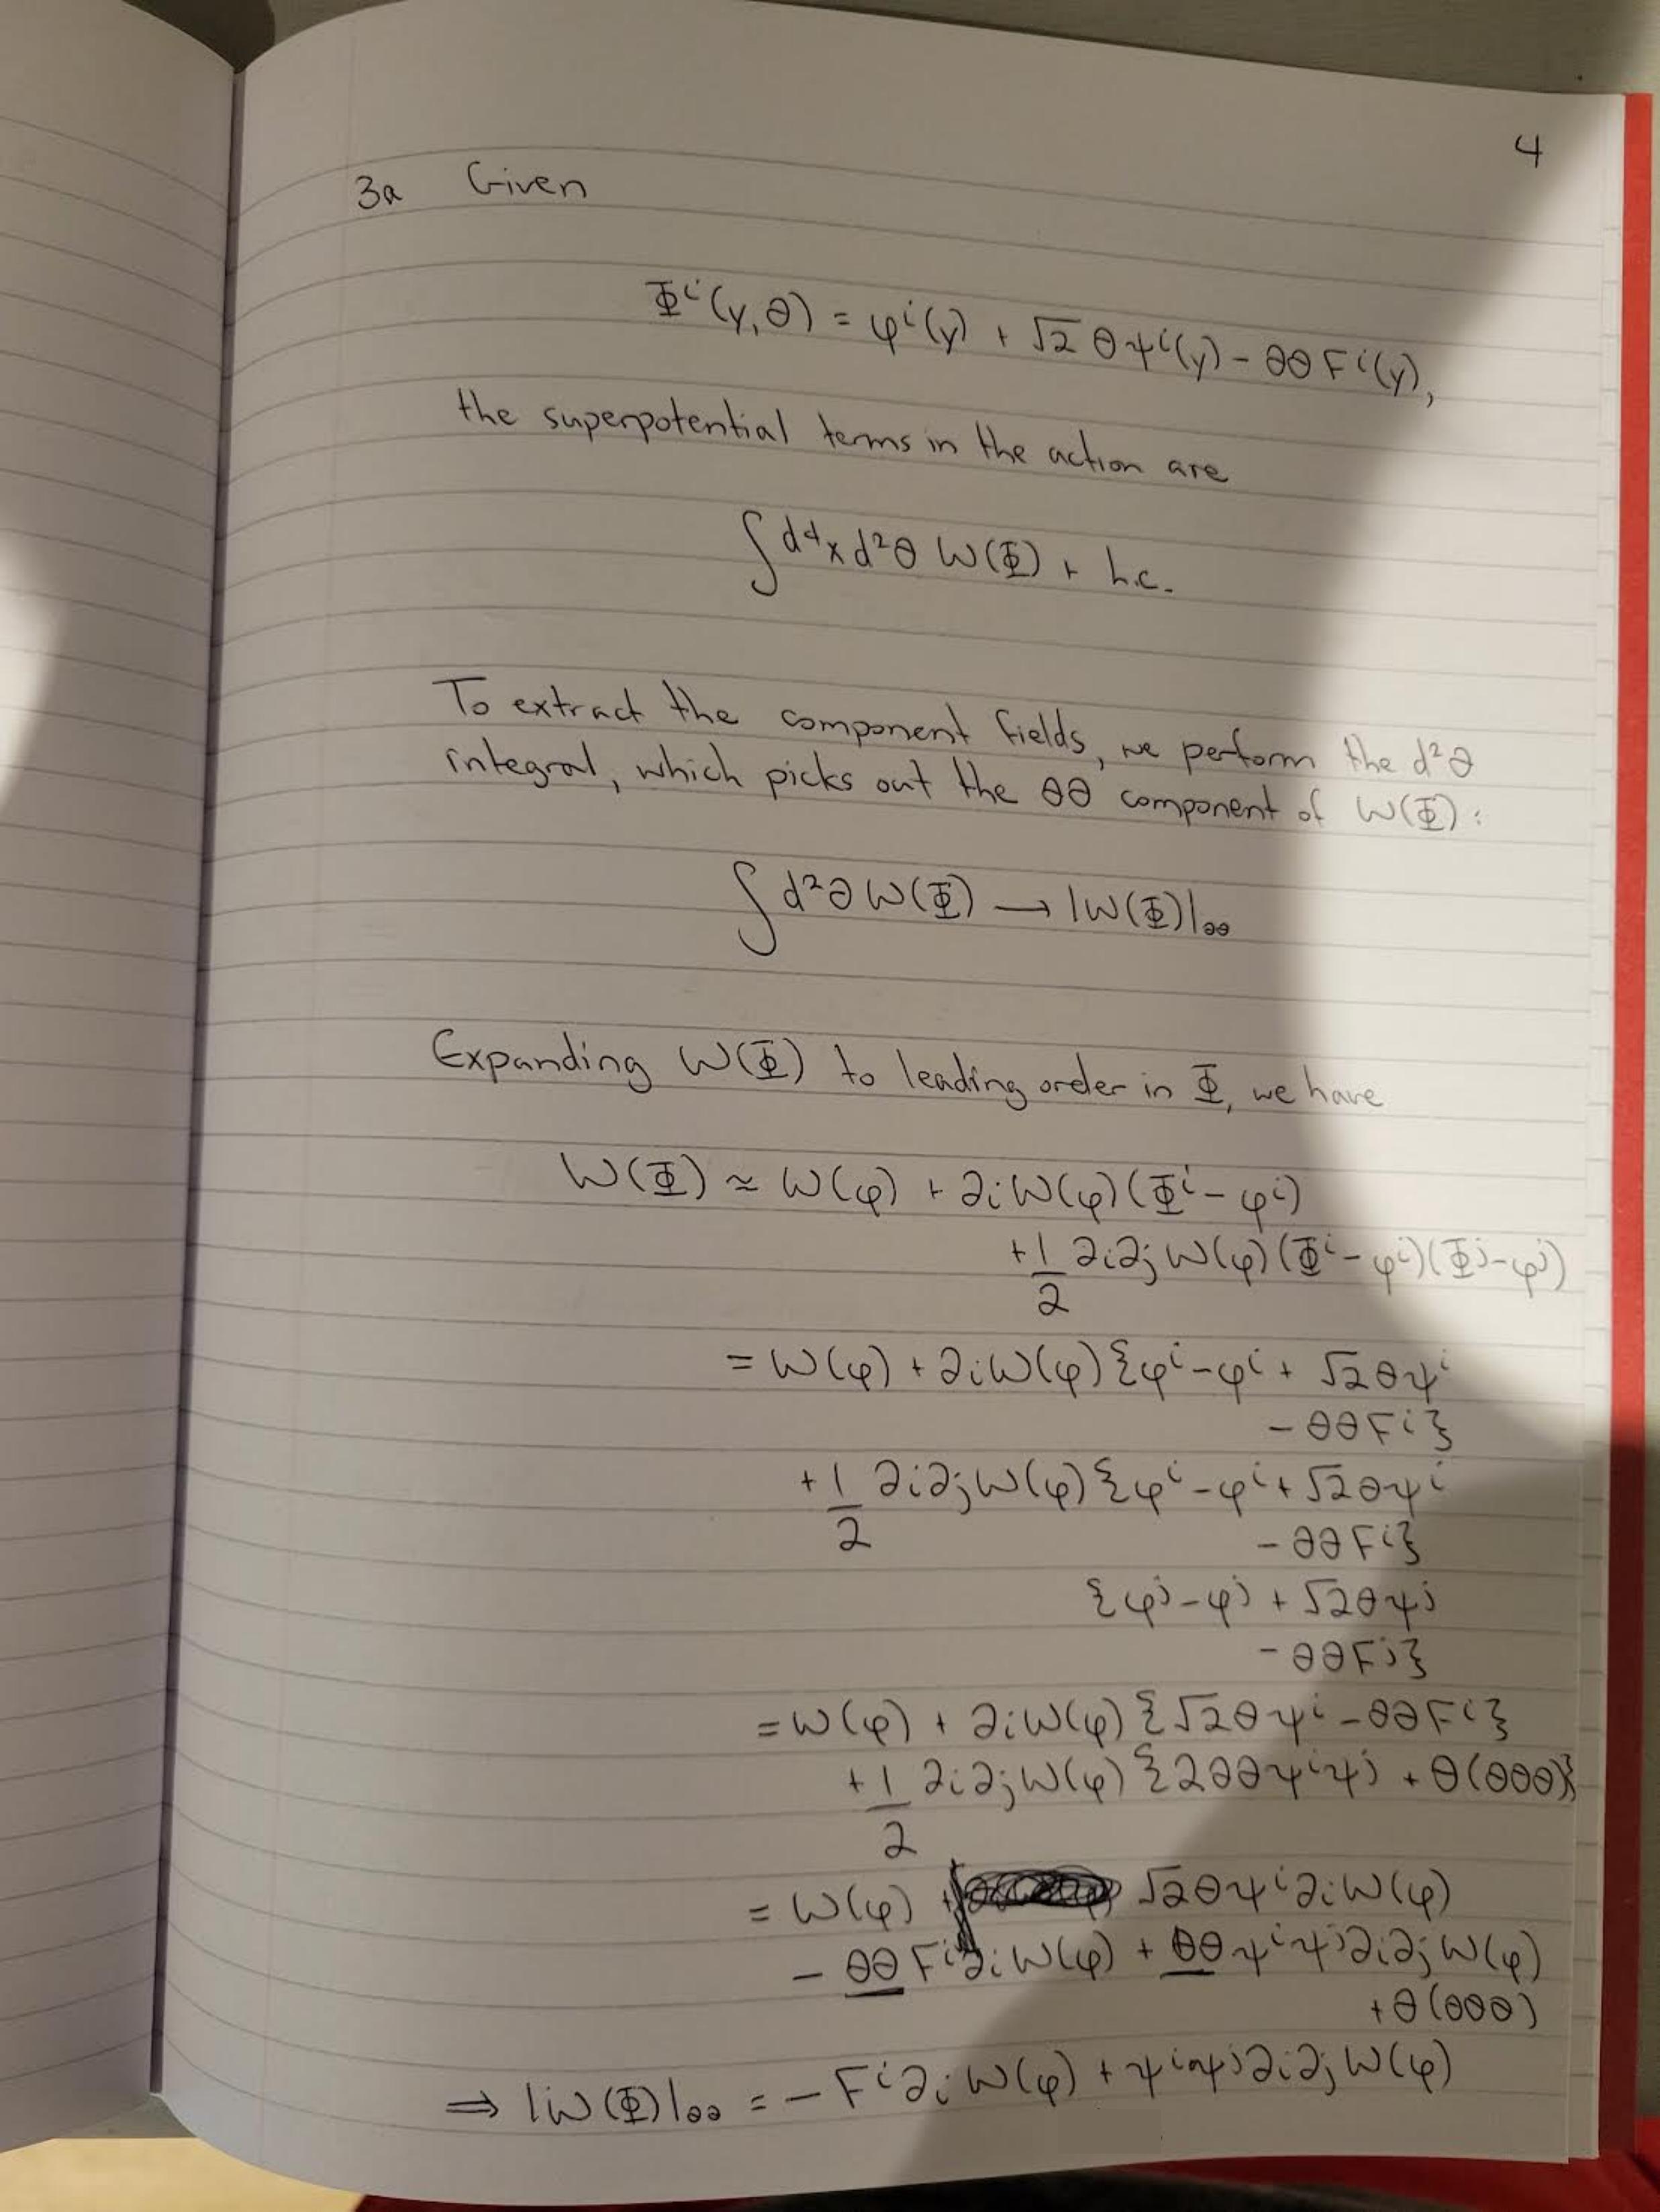 4
3a Given
Φⁱ(y,θ) = φⁱ(y) + √2 θψⁱ(y) - θθFⁱ(y),
the superpotential terms in the action are
∫d⁴x d²θ W(Φ) + h.c.
To extract the component fields, we perform the d²θ
integral, which picks out the θθ component of W(Φ):
∫d²θ W(Φ) → |W(Φ)|θθ
Expanding W(Φ) to leading order in Φ, we have
W(Φ) ≈ W(φ) + ∂ᵢW(φ)(Φⁱ - φⁱ)
+ 1/2 ∂ᵢ∂ⱼW(φ)(Φⁱ - φⁱ)(Φʲ - φʲ)
= W(φ) + ∂ᵢW(φ){φⁱ - φⁱ + √2θψⁱ
- θθFⁱ}
+ 1/2 ∂ᵢ∂ⱼW(φ){φⁱ - φⁱ + √2θψⁱ
- θθFⁱ}
{φʲ - φʲ + √2θψʲ
- θθFʲ}
= W(φ) + ∂ᵢW(φ){√2θψⁱ - θθFⁱ}
+ 1/2 ∂ᵢ∂ⱼW(φ){2θθψⁱψʲ + θ(θθθ)}
= W(φ) + √2θψⁱ∂ᵢW(φ)
- θθFⁱ∂ᵢW(φ) + θθψⁱψʲ∂ᵢ∂ⱼW(φ)
+ θ(θθθ)
⇒ |W(Φ)|θθ = - Fⁱ∂ᵢW(φ) + ψⁱψʲ∂ᵢ∂ⱼW(φ)